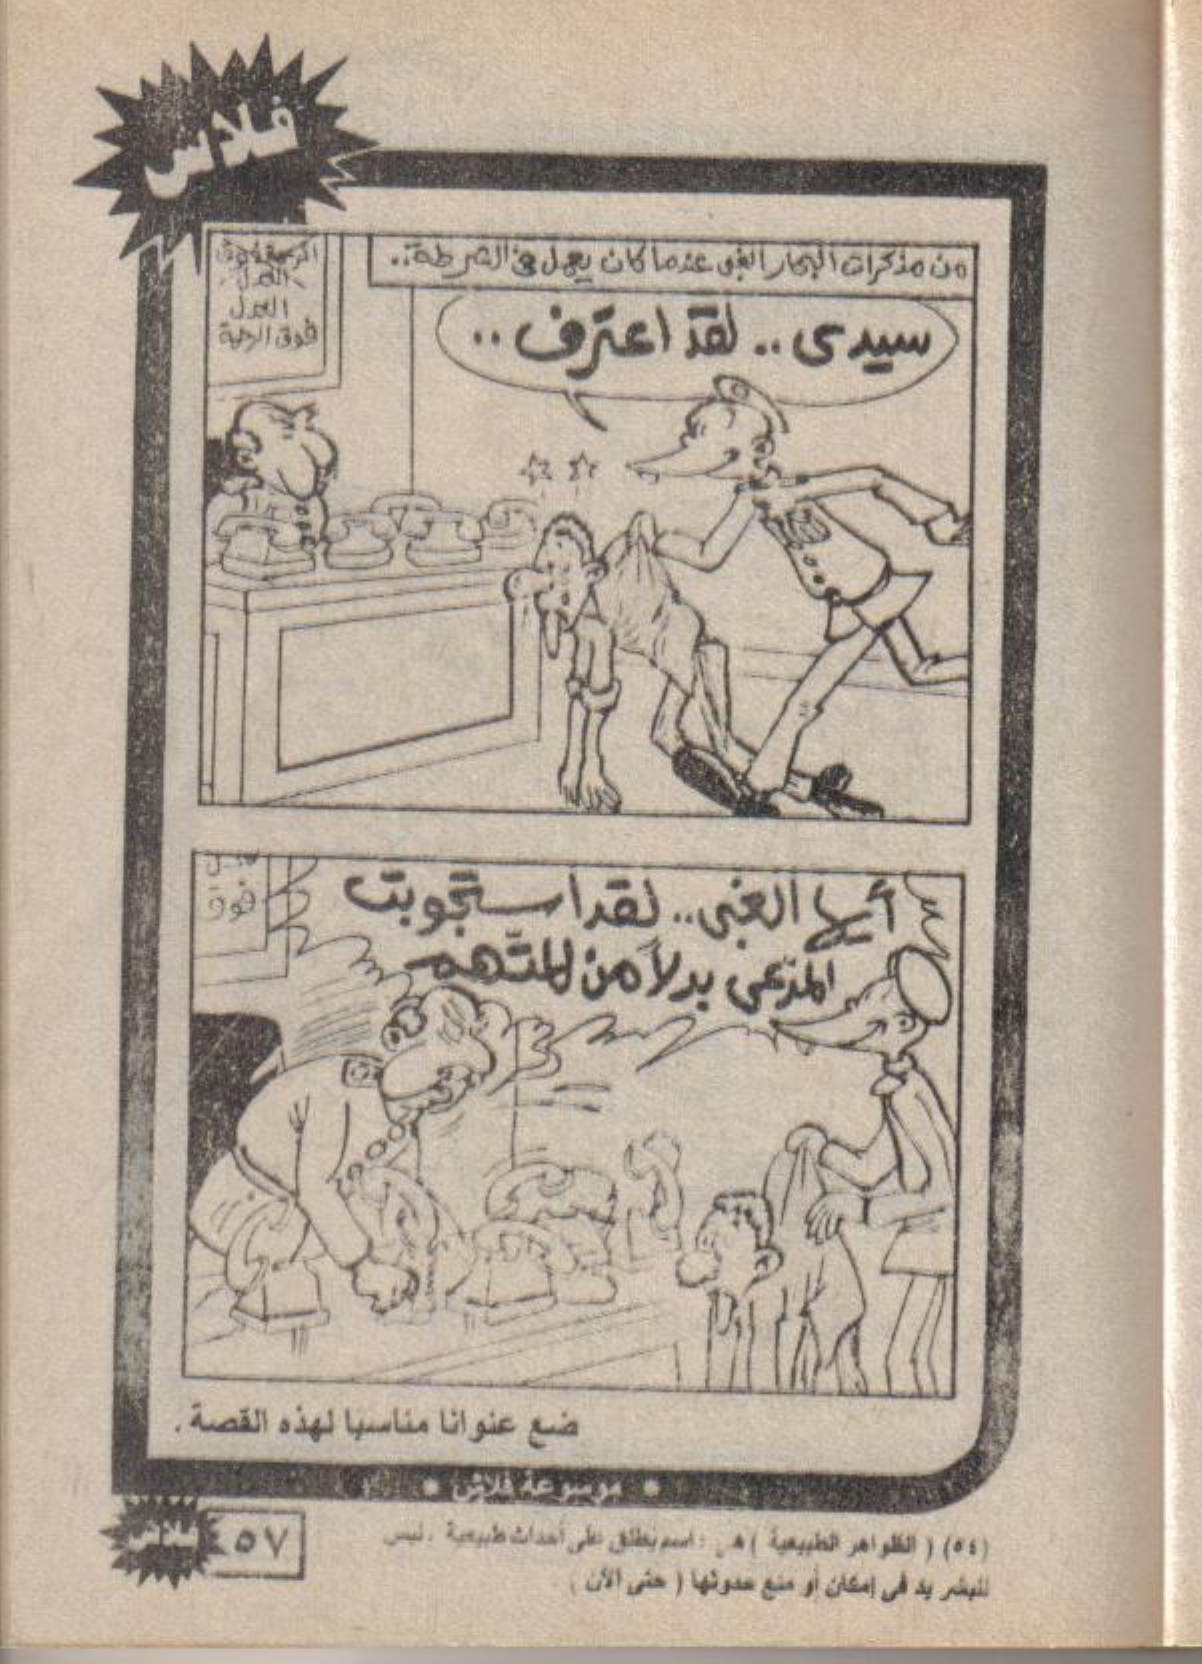 فلاش
من مذكرات البحار الغبى عندما كان يعمل فى الشرطة..
الرحمة فوق
العدل
العدل
فوق الرحمة
سيدى .. لقد اعترف ..
فوق
أيها الغبى.. لقد استجوبت
المدّعى بدلاً من المتّهم
ضع عنوانا مناسبا لهذه القصة .
* موسوعة فلاش *
(٥٤) ( الظواهر الطبيعية ) هى : اسم يطلق على أحداث طبيعية . ليس
للبشر يد فى إمكان أو منع حدوثها ( حتى الآن ) .
٥٧
فلاش